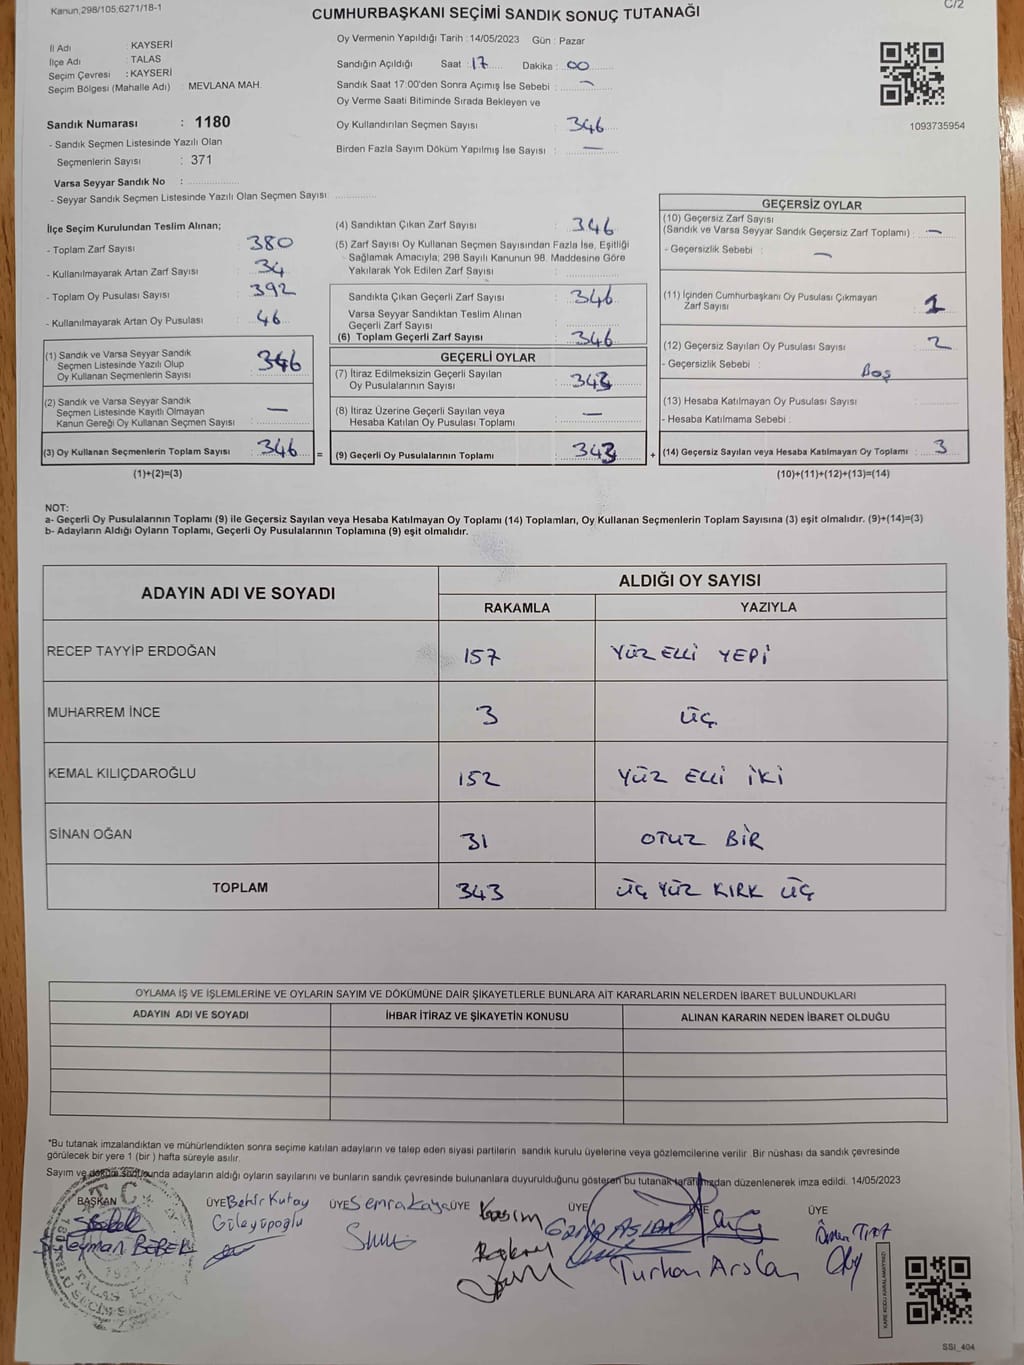 Kanun,298/105,6271/18-1
C/2
CUMHURBAŞKANI SEÇİMİ SANDIK SONUÇ TUTANAĞI
İl Adı : KAYSERİ
İlçe Adı : TALAS
Seçim Çevresi : KAYSERİ
Seçim Bölgesi (Mahalle Adı) : MEVLANA MAH.
Sandık Numarası : 1180
- Sandık Seçmen Listesinde Yazılı Olan
Seçmenlerin Sayısı : 371
Varsa Seyyar Sandık No :
- Seyyar Sandık Seçmen Listesinde Yazılı Olan Seçmen Sayısı :
Oy Vermenin Yapıldığı Tarih : 14/05/2023 Gün : Pazar
Sandığın Açıldığı Saat : 17 Dakika : 00
Sandık Saat 17:00'den Sonra Açımış İse Sebebi : -
Oy Verme Saati Bitiminde Sırada Bekleyen ve
Oy Kullandırılan Seçmen Sayısı : 346
Birden Fazla Sayım Döküm Yapılmış İse Sayısı : -
1093735954
İlçe Seçim Kurulundan Teslim Alınan;
- Toplam Zarf Sayısı : 380
- Kullanılmayarak Artan Zarf Sayısı : 34
- Toplam Oy Pusulası Sayısı : 392
- Kullanılmayarak Artan Oy Pusulası : 46
(1) Sandık ve Varsa Seyyar Sandık
Seçmen Listesinde Yazılı Olup
Oy Kullanan Seçmenlerin Sayısı : 346
(2) Sandık ve Varsa Seyyar Sandık
Seçmen Listesinde Kayıtlı Olmayan
Kanun Gereği Oy Kullanan Seçmen Sayısı : -
(3) Oy Kullanan Seçmenlerin Toplam Sayısı : 346
(1)+(2)=(3)
(4) Sandıktan Çıkan Zarf Sayısı : 346
(5) Zarf Sayısı Oy Kullanan Seçmen Sayısından Fazla İse, Eşitliği
Sağlamak Amacıyla; 298 Sayılı Kanunun 98. Maddesine Göre
Yakılarak Yok Edilen Zarf Sayısı :
Sandıkta Çıkan Geçerli Zarf Sayısı : 346
Varsa Seyyar Sandıktan Teslim Alınan
Geçerli Zarf Sayısı :
(6) Toplam Geçerli Zarf Sayısı : 346
GEÇERLİ OYLAR
(7) İtiraz Edilmeksizin Geçerli Sayılan
Oy Pusulalarının Sayısı : 343
(8) İtiraz Üzerine Geçerli Sayılan veya
Hesaba Katılan Oy Pusulası Toplamı : -
= (9) Geçerli Oy Pusulalarının Toplamı : 343
GEÇERSİZ OYLAR
(10) Geçersiz Zarf Sayısı
(Sandık ve Varsa Seyyar Sandık Geçersiz Zarf Toplamı) : -
- Geçersizlik Sebebi : -
(11) İçinden Cumhurbaşkanı Oy Pusulası Çıkmayan
Zarf Sayısı : 1
(12) Geçersiz Sayılan Oy Pusulası Sayısı : 2
- Geçersizlik Sebebi : Boş
(13) Hesaba Katılmayan Oy Pusulası Sayısı :
- Hesaba Katılmama Sebebi :
+ (14) Geçersiz Sayılan veya Hesaba Katılmayan Oy Toplamı : 3
(10)+(11)+(12)+(13)=(14)
NOT:
a- Geçerli Oy Pusulalarının Toplamı (9) ile Geçersiz Sayılan veya Hesaba Katılmayan Oy Toplamı (14) Toplamları, Oy Kullanan Seçmenlerin Toplam Sayısına (3) eşit olmalıdır. (9)+(14)=(3)
b- Adayların Aldığı Oyların Toplamı, Geçerli Oy Pusulalarının Toplamına (9) eşit olmalıdır.
ADAYIN ADI VE SOYADI
ALDIĞI OY SAYISI
RAKAMLA YAZIYLA
RECEP TAYYİP ERDOĞAN 157 YÜZ ELLİ YEDİ
MUHARREM İNCE 3 ÜÇ
KEMAL KILIÇDAROĞLU 152 YÜZ ELLİ İKİ
SİNAN OĞAN 31 OTUZ BİR
TOPLAM 343 ÜÇ YÜZ KIRK ÜÇ
OYLAMA İŞ VE İŞLEMLERİNE VE OYLARIN SAYIM VE DÖKÜMÜNE DAİR ŞİKAYETLERLE BUNLARA AİT KARARLARIN NELERDEN İBARET BULUNDUKLARI
ADAYIN ADI VE SOYADI İHBAR İTİRAZ VE ŞİKAYETİN KONUSU ALINAN KARARIN NEDEN İBARET OLDUĞU
*Bu tutanak imzalandıktan ve mühürlendikten sonra seçime katılan adayların ve talep eden siyasi partilerin sandık kurulu üyelerine veya gözlemcilerine verilir. Bir nüshası da sandık çevresinde
görülecek bir yere 1 (bir) hafta süreyle asılır.
Sayım ve döküm sonucunda adayların aldığı oyların sayılarını ve bunların sandık çevresinde bulunanlara duyurulduğunu gösteren bu tutanak tarafımızdan düzenlenerek imza edildi. 14/05/2023
BAŞKAN ÜYE Bekir Kutay ÜYE Semra Kaya ÜYE Kasım ÜYE ÜYE
Süleyman BEBEK Güleyüpoğlu
Turhan Arslan
T.C.
TALAS
KARE KODU KARALAMAYINIZ!
SSI_404